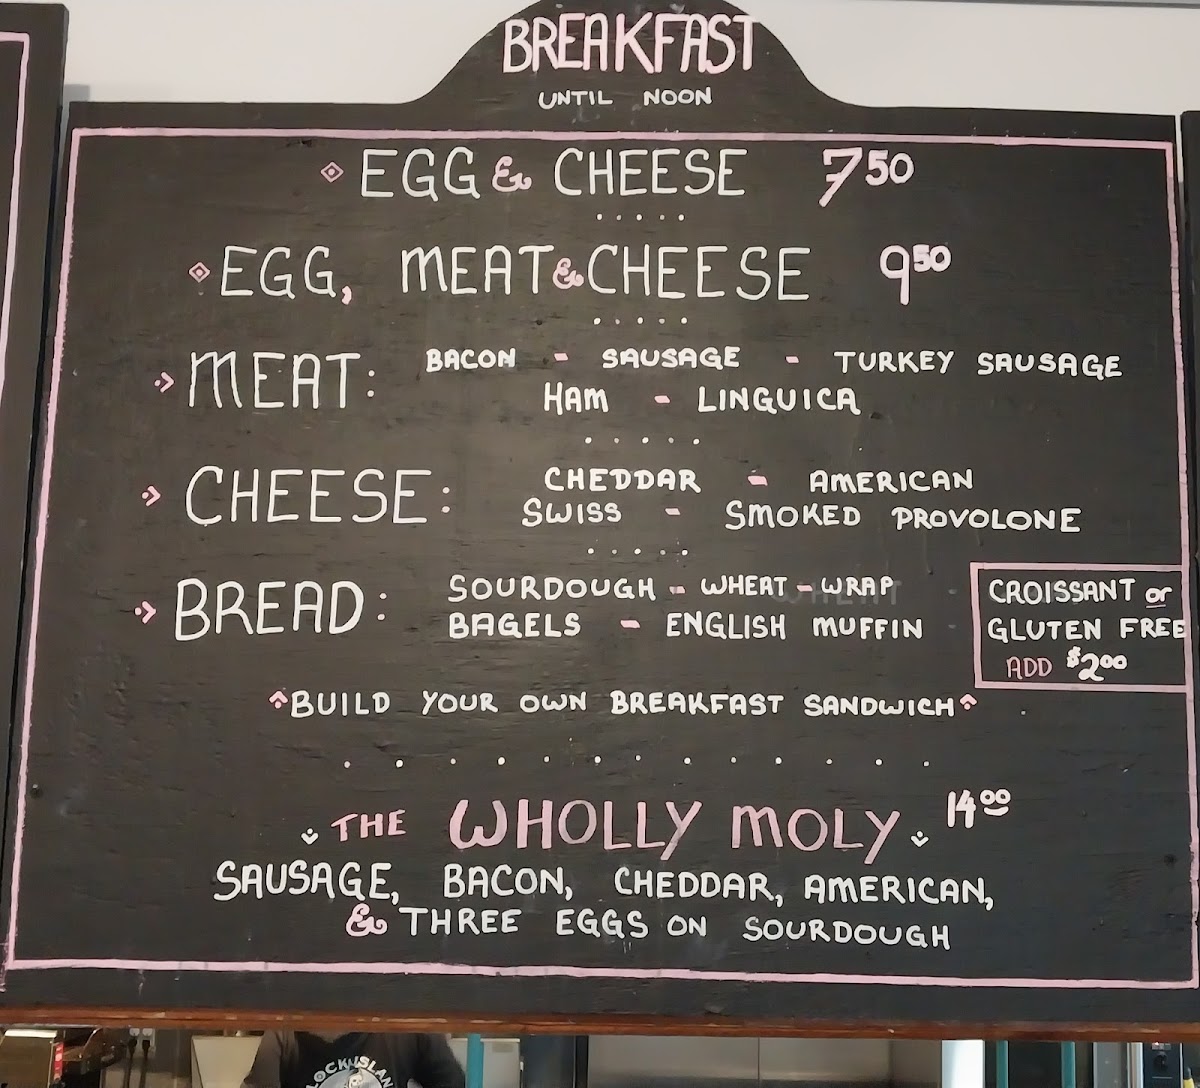 BREAKFAST
UNTIL NOON
EGG & CHEESE 7 50
EGG, MEAT & CHEESE 9 50
MEAT: BACON - SAUSAGE - TURKEY SAUSAGE
HAM - LINGUICA
CHEESE: CHEDDAR - AMERICAN
SWISS - SMOKED PROVOLONE
BREAD: SOURDOUGH - WHEAT - WRAP
BAGELS - ENGLISH MUFFIN
CROISSANT or
GLUTEN FREE
ADD $2 00
BUILD YOUR OWN BREAKFAST SANDWICH
THE WHOLLY MOLY 14 00
SAUSAGE, BACON, CHEDDAR, AMERICAN,
& THREE EGGS ON SOURDOUGH